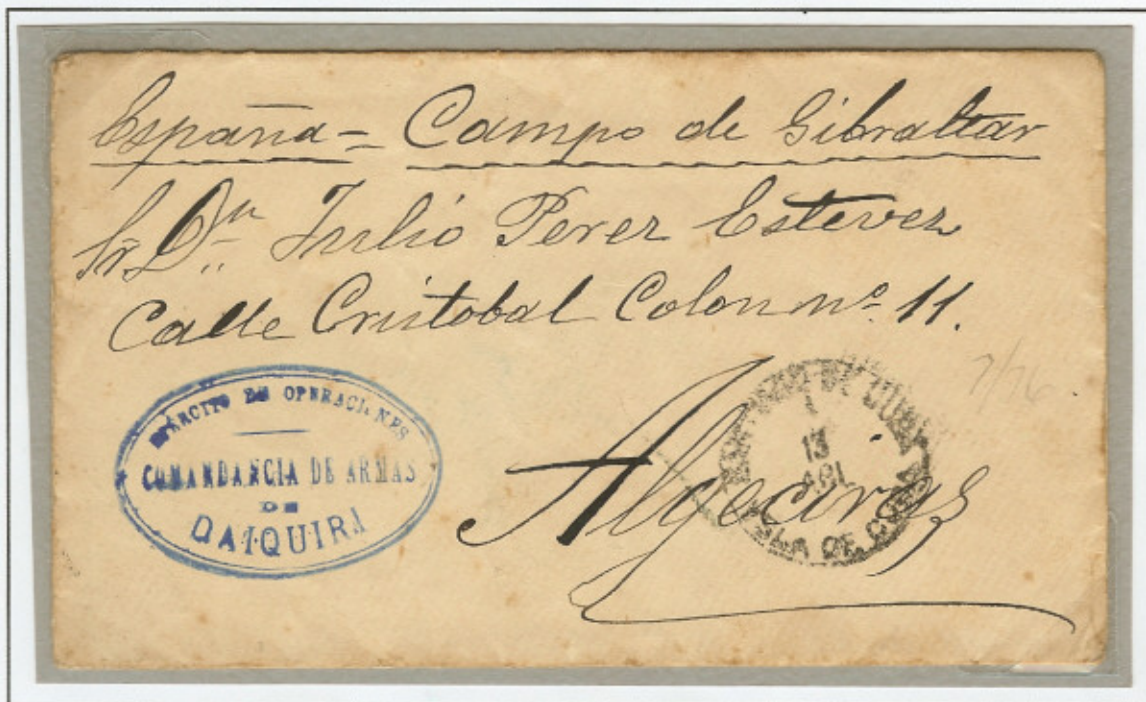 España = Campo de Gibraltar
Sr. Dn. Julio Perez Estevez
Calle Cristobal Colon nº 11.
Algeciras
EJÉRCITO DE OPERACIONES
COMANDANCIA DE ARMAS
DE
DAIQUIRI
SANTIAGO DE CUBA
13
ABL
ISLA DE CUBA